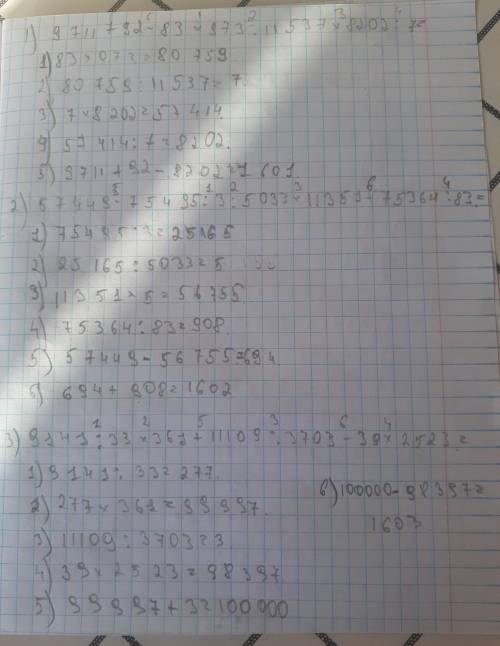 1) 9711+92-83×973:11537×8202:7=
1) 83×973=80 759
2) 80 759:11537=7.
3) 7×8202=57 414
4) 57 414:7=8202.
5) 9711+92-8202=1 601.
2) 57449-75495:3:5033×11351+75364:83=
1) 75495:3=25165
2) 25 165:5033=5
3) 11351×5=56755
4) 75364:83=908.
5) 57449-56755=694
6) 694+908=1602
3) 9141:33×361+11109:3703-39×2523=
1) 9141:33=277.
2) 277×361=99997.
3) 11109:3703=3
4) 39×2523=98397
5) 99997+3=100000
6) 100000-98397=
1603